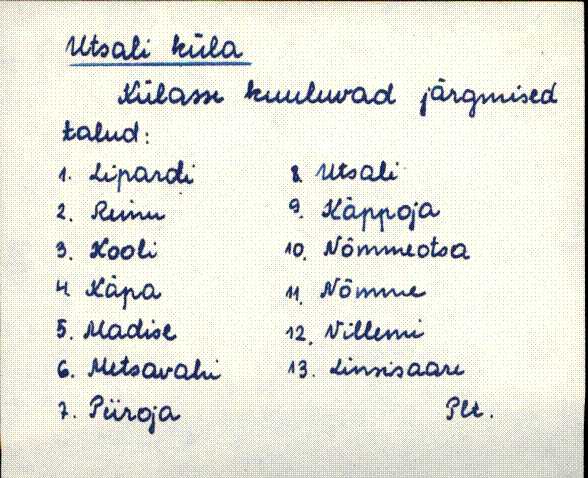 Utsali küla
Külasse kuuluvad järgmised
talud:
1. Lipardi
2. Reinu
3. Kooli
4. Käpa
5. Madise
6. Metsavahi
7. Piiroja
8. Utsali
9. Käppoja
10. Nõmmeotsa
11. Nõmme
12. Villemi
13. Linsisaare
Plt.